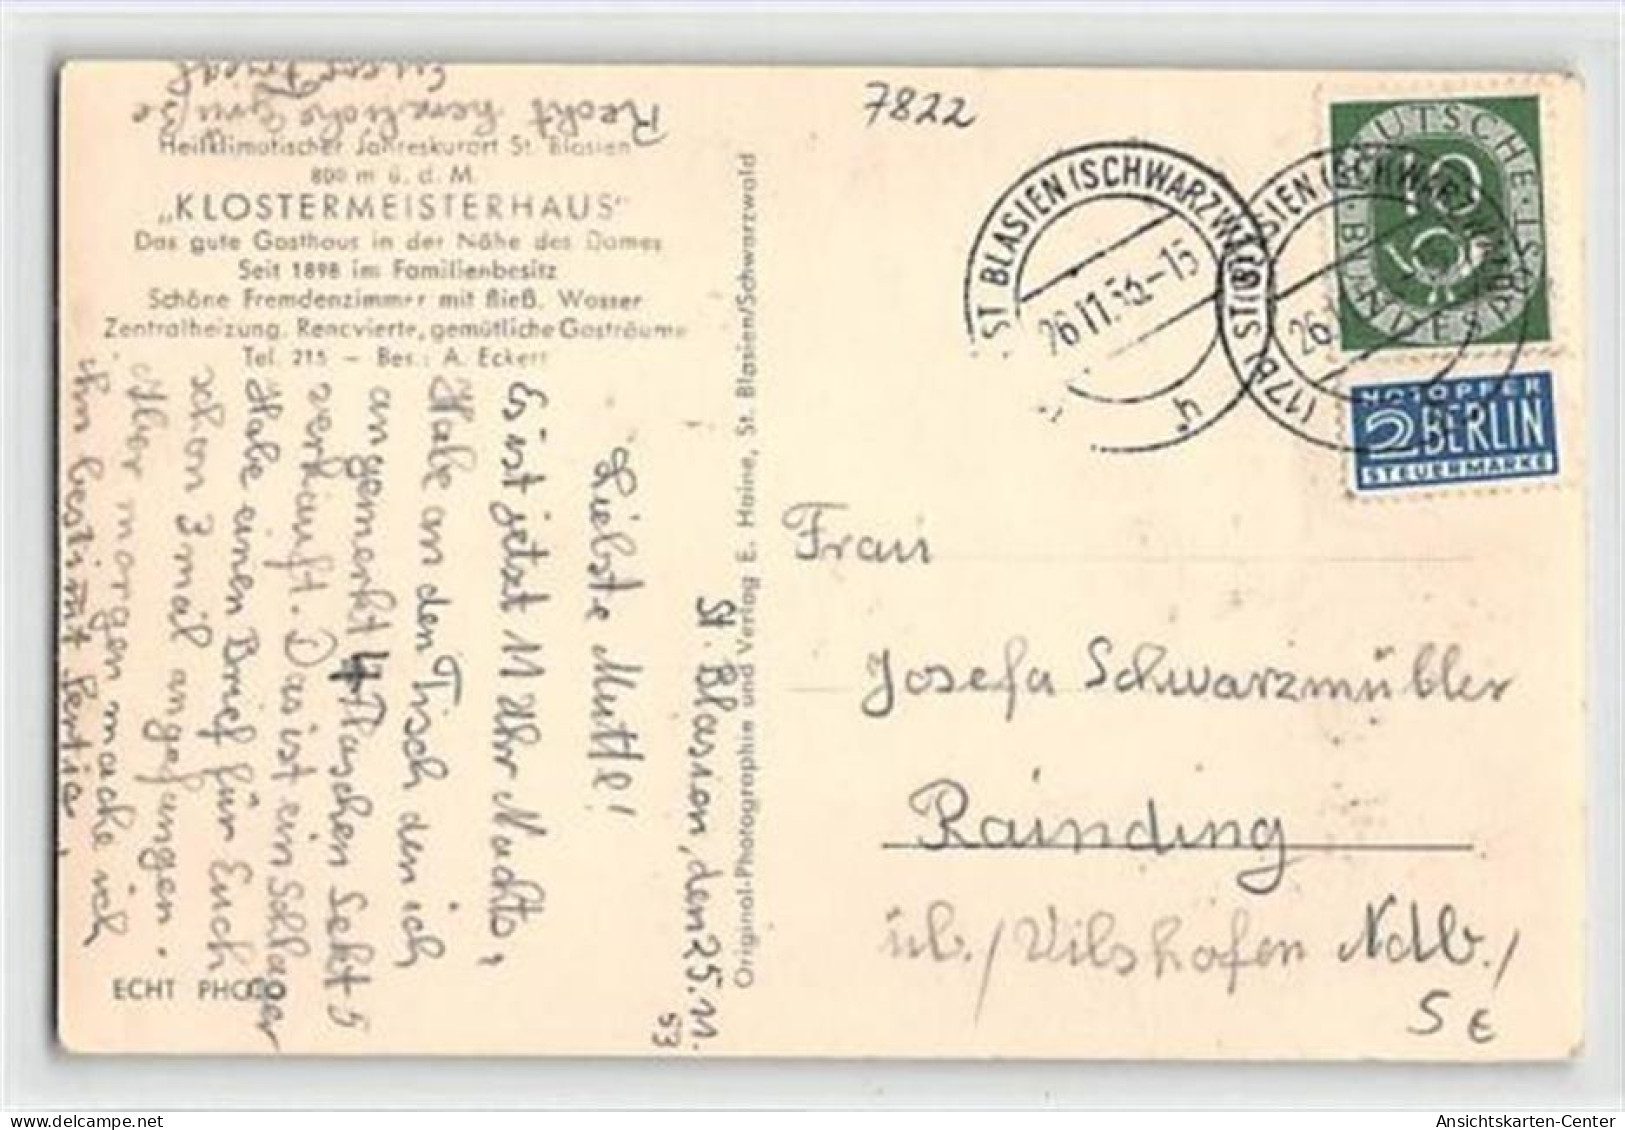 Recht herzliche Grüße
Heilklimatischer Jahreskurort St. Blasien
800 m ü. d. M.
„KLOSTERMEISTERHAUS"
Das gute Gasthaus in der Nähe des Domes
Seit 1898 im Familienbesitz
Schöne Fremdenzimmer mit fließ. Wasser
Zentralheizung. Renovierte, gemütliche Gasträume
Tel. 215 – Bes.: A. Eckert
St. Blasien, den 25. 11.
53
Liebste Mutter!
Es ist jetzt 11 Uhr Nachts,
Habe an den Tisch den ich
4 Flaschen Sekt
verkauft. Das ist ein Schlager
Habe einen Brief für Euch
schon 3 mal angefangen.
Aber morgen mache ich
ihn bestimmt fertig.
ECHT PHOTO
Original-Photographie und Verlag E. Haine, St. Blasien/Schwarzwald
7822
ST BLASIEN (SCHWARZW
26.11.53.-15
h
(17B) ST BLASIEN (SCHWARZWALD)
26.
DEUTSCHE BUNDESPOST
10
NOTOPFER
2 BERLIN
STEUERMARKE
Frau
Josefa Schwarzmüller
Rainding
üb./Vilshofen Ndb./
S E
Ansichtskarten-Center